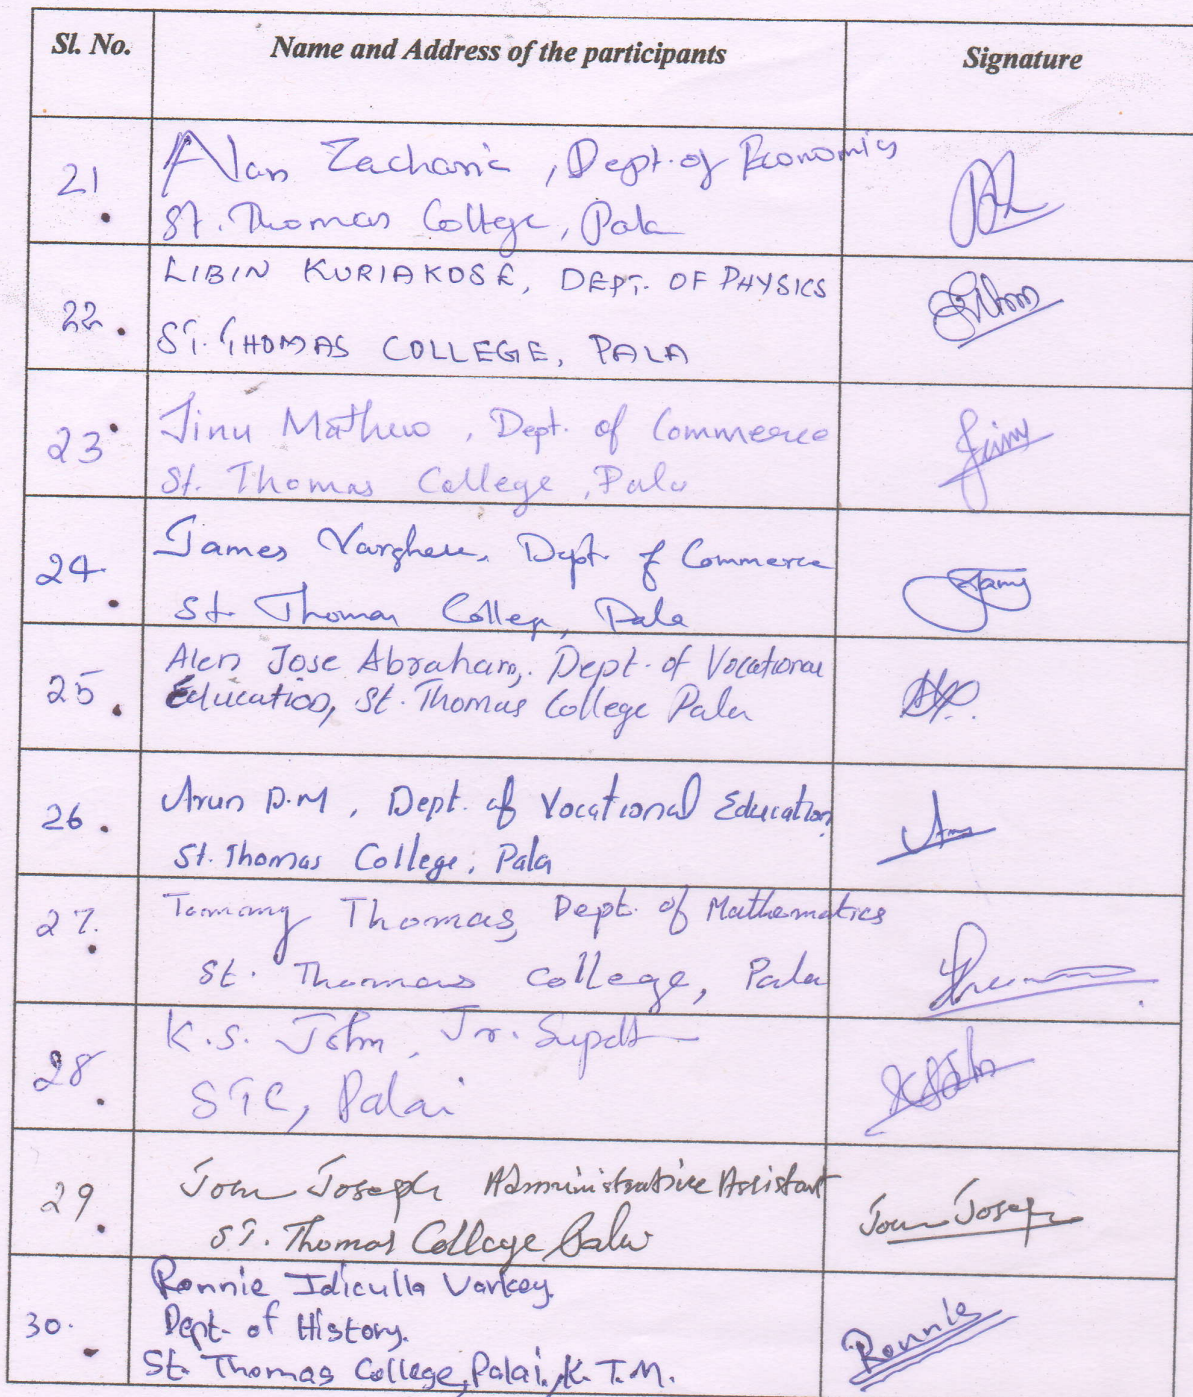 Sl. No. Name and Address of the participants Signature
21. Alan Zacharia, Dept. of Economics
St. Thomas College, Pala
22. LIBIN KURIAKOSE, DEPT. OF PHYSICS
ST. THOMAS COLLEGE, PALA
23. Jinu Mathew, Dept. of Commerce Jinu
St. Thomas College, Pala
24. James Varghese, Dept. of Commerce
St. Thomas College, Pala
25. Alen Jose Abraham, Dept. of Vocational
Education, St. Thomas College Pala
26. Arun P.M, Dept. of Vocational Education
St. Thomas College, Pala
27. Tommy Thomas, Dept. of Mathematics
St. Thomas College, Pala
28. K.S. John, Jr. Supdt
STC, Palai
29. Joseph Administrative Assistant Joseph
ST. Thomas College Pala
30. Ronnie Idiculla Varkey. Ronnie
Dept. of History.
St. Thomas College, Palai, K.T.M.